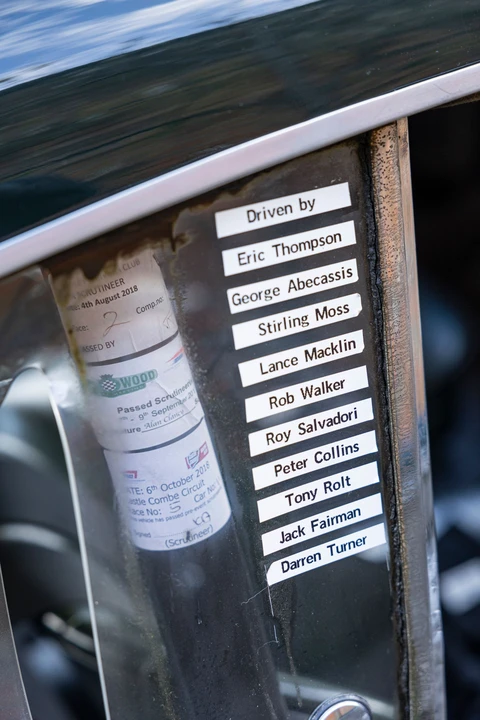 Driven by
Eric Thompson
George Abecassis
Stirling Moss
Lance Macklin
Rob Walker
Roy Salvadori
Peter Collins
Tony Rolt
Jack Fairman
Darren Turner
CLUB
4th August 2018
2 Comp.no
SSED BY
WOOD
Passed Scrutineer
9th September 20
Alan
ATE: 6th October 2018
stle Combe Circuit
ace No: 5 Car No
vehicle has passed pre-event
(Scrutineer)